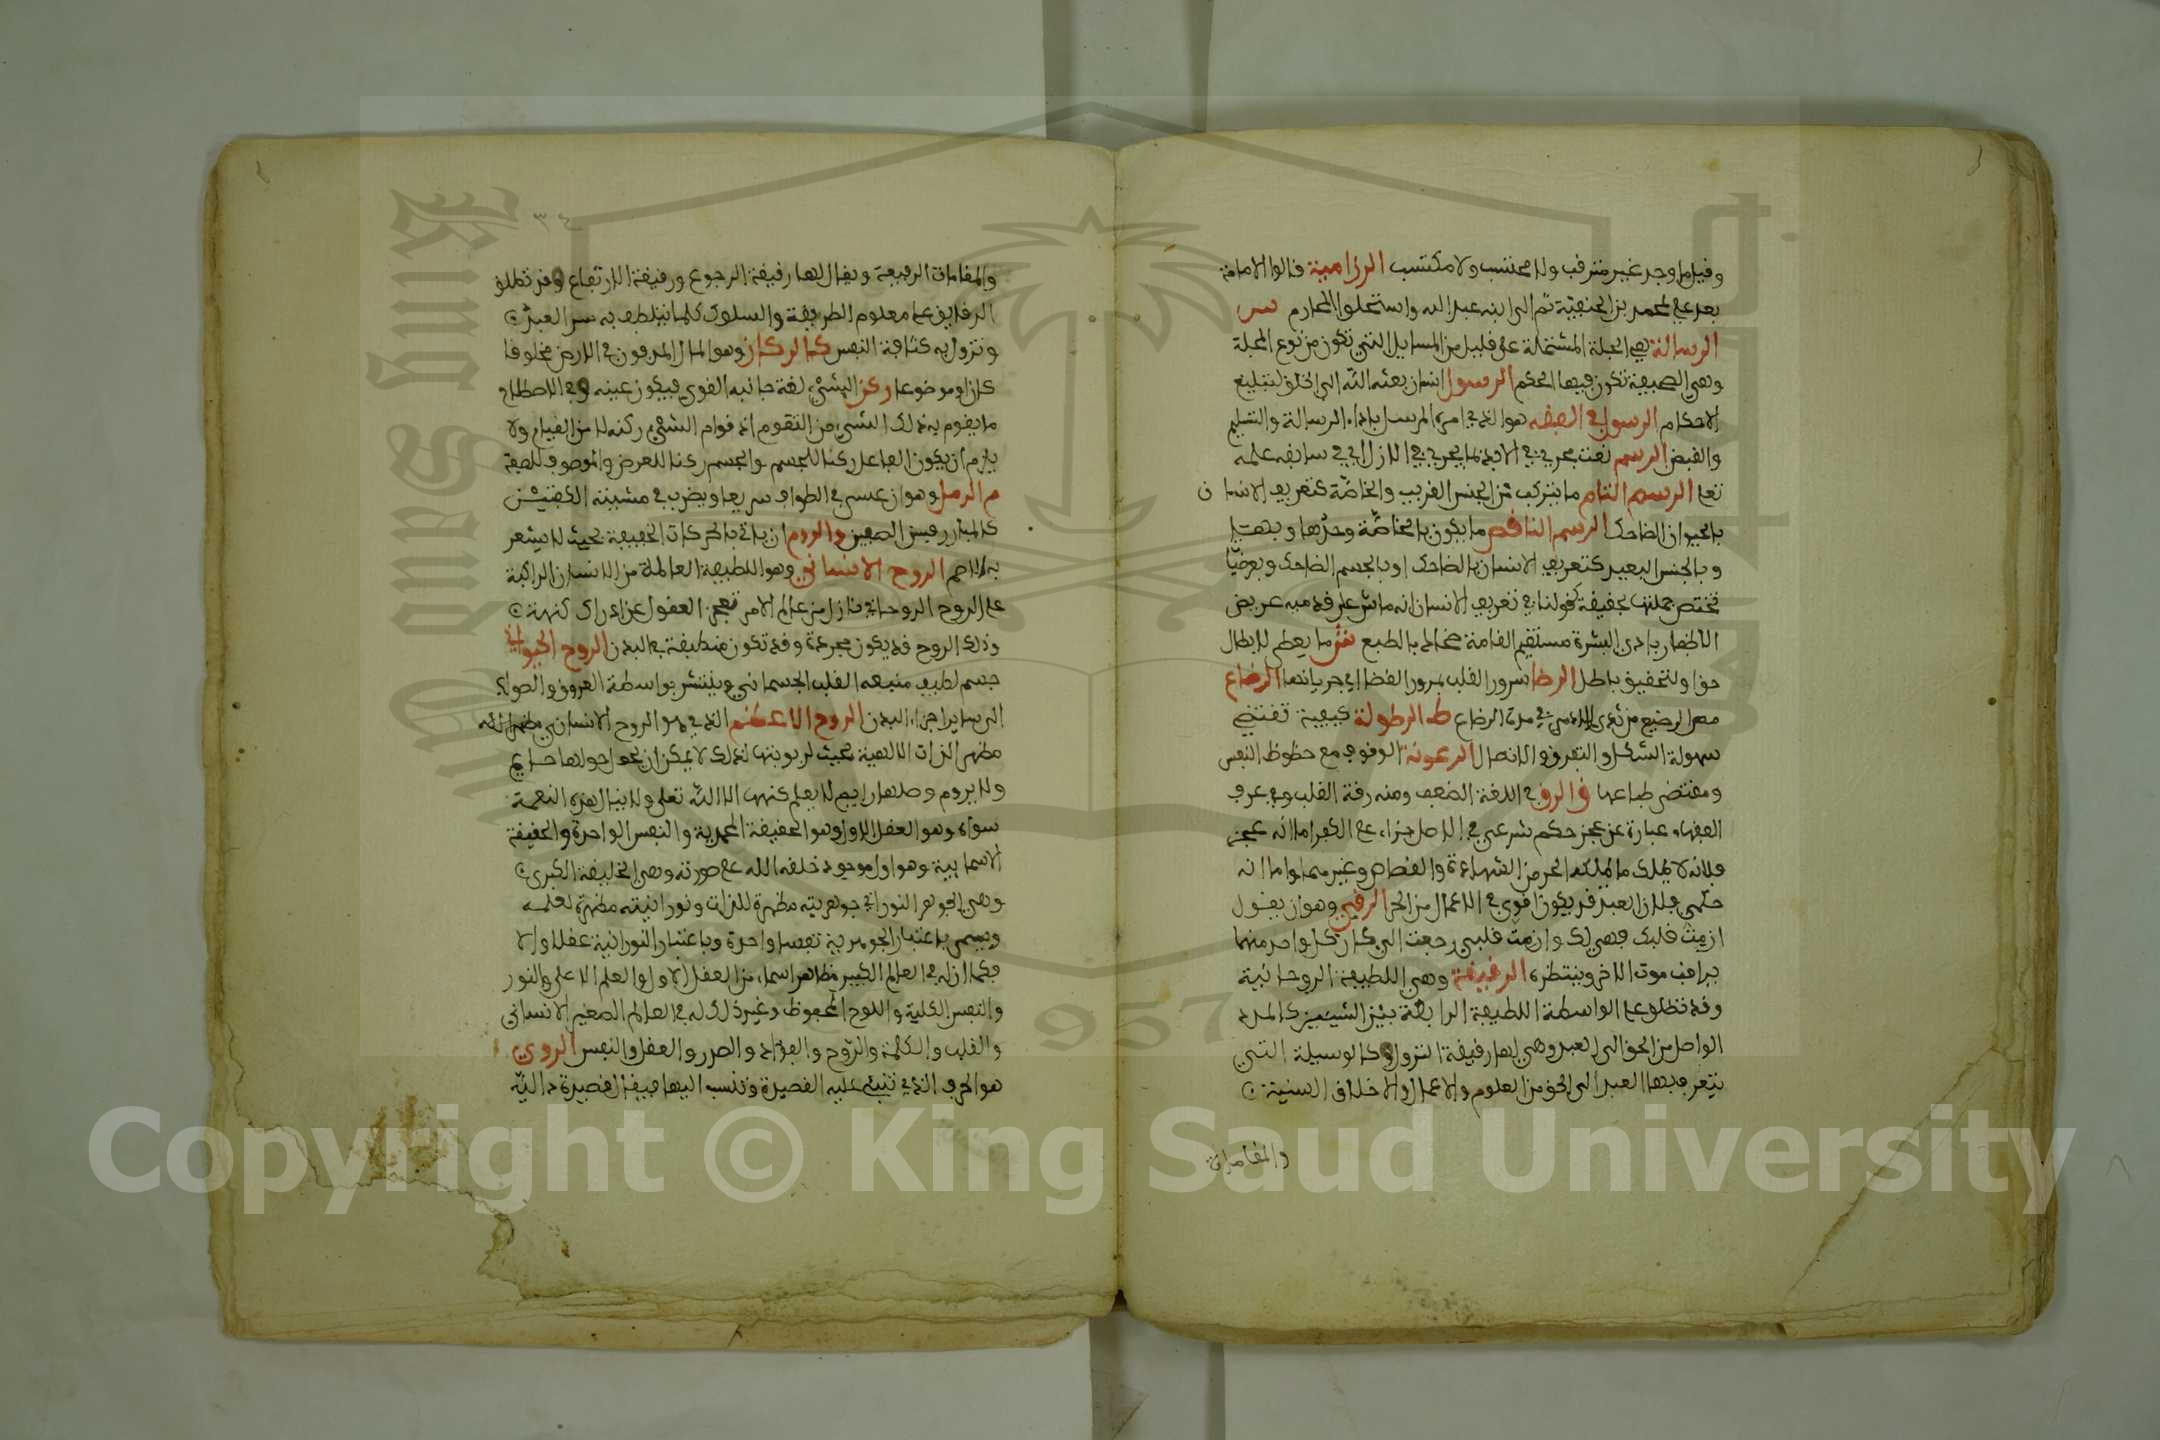 وقيل ما وجد غير مترقب ولا محتسب ولا مكتسب الرزامية قالوا الامامة
بعد علي لمحمد بن الحنفية ثم الى ابنه عبد الله واستحلوا المحارم س
الرسالة هي المجلة المشتملة على قليل من المسايل التي تكون من نوع المجلة
وهي الصحيفة تكون فيها الحكم الرسول انسان بعثه الله الى الخلق لتبليغ
الاحكام الرسول في الفقه هو الذي امره المرسل باداء الرسالة والتسليم
والقبض الرسم نعت يجري في الابد بما يجري في الازل اي في سابق علمه
تعا الرسم التام ما يتركب من الجنس القريب والخاصة كتعريف الانسان
بالحيوان الضاحك الرسم الناقص ما يكون بالخاصة وحدها وبها
وبالجنس البعيد كتعريف الانسان بالضاحك او بالجسم الضاحك وبعرضيات
تختص جملتها بحقيقة كقولنا في تعريف الانسان انه ماش على قدميه عريض
الاظفار بادي البشرة مستقيم القامة ضحاك بالطبع ش ما يعطى لابطال
حق او لتحقيق باطل الرضا سرور القلب بمرور القضا اي جريانه الرضاع
مص الرضيع من ثدي الادمي في مدة الرضاع ط الرطوبة كيفية تقتضي
سهولة الشكل والتفرق والاتصال الرعونة الوقوف مع حظوظ النفس
ومقتضى طباعها ق الرق في اللغة الضعف ومنه رقة القلب وفي عرف
الفقهاء عبارة عن عجز حكم شرعي في الاصل جزاء عن الكفر اما انه عجز
فلانه لا يملك ما يملكه الحر من الشهادة والقضا وغيرهما واما انه
حكمي فلان العبد قد يكون اقوى في الاعمال من الحر الرقبى وهو ان يقول
ان مت قبلك فهي لك وان مت قبلي رجعت الي كان كل واحد منهما
يراقب موت الاخر وينتظره الرقيقة وهي اللطيفة الروحانية
وقد تطلق على الواسطة اللطيفة الرابطة بين الشيئين كالمدد
الواصل من الحق الى العبد وهي لها رقيقة النزول وكالوسيلة التي
يتعرب بها العبد الى الحق من العلوم والاعمال والاخلاق السنية
والمقامات
٣٤
والمقامات الرفيعة ويقال لها رقيقة الرجوع ورقيقة الارتقاع وقد تطلق
الرقايق على معلوم الطريقة والسلوك كلما يتلطف به سر العبد
وتزول به كثافة النفس ك الركاز وهو المال المدفون في الارض مخلوقا
كان او موضوعا ركن الشيء لغة جانبه القوي فيكون عينه وفي الاصطلاح
ما يقوم به ذلك الشيء من التقوم اذ قوام الشيء ركنه لا من القيام ولا
يلزم ان يكون الفاعل ركنا للجسم والجسم ركنا للعرض والموصوف للصفة
م الرمل وهو ان يمشي في الطواف سريعا ويضرب في مشيته الكتفين
كالمبارز بين الصفين و الروم ان ياتي بالحركات الخفيفة بحيث لا يشعر
به الاصم الروح الانساني وهو اللطيفة العالمة من الانسان الراكبة
على الروح الروحاني نازل من عالم الامر تعجز العقول عن ادراك كنهه
وذلك الروح قد يكون مجردة وقد تكون منطبقة في البدن الروح الحيواني
جسم لطيف منبعه القلب الجسماني وينتشر بواسطة العروق والضوارب
الى ساير اجزاء البدن الروح الاعظم الذي هو الروح الانساني مظهر الله
مظهر الذات الالهية بحيث لربوبيتها لذلك لا يمكن ان يحول حولها حايم
ولا يروم وصلها رايم لا يعلم كنهها الا الله تعلى ولا ينال هذه النعمة
سواه وهو العقل الاول وهو الحقيقة المحمدية والنفس الواحدة والحقيقة
الاسمايية وهو اول موجود خلقه الله على صورته وهي الخليفة الكبرى
وهي الجوهر النوراني جوهريته مظهرة للذات ونورانيته مظهرة لعلمه
ويسمى باعتبار الجوهرية نفسا واحدة وباعتبار النورانية عقلا اولا
فكما ان له في العالم الكبير مظاهر اسماء من العقل الاول والعلم الاعلى والنور
والنفس الكلية واللوح المحفوظ وغير ذلك له في العالم الصغير الانساني
والقلب والكلمة والروح والفؤاد والصدر والعقل والنفس الروي
هو الحرف الذي تنبني عليه القصيدة وتنسب اليها فيقال قصيدة دالية
Copyright © King Saud University
King Saud University
1957